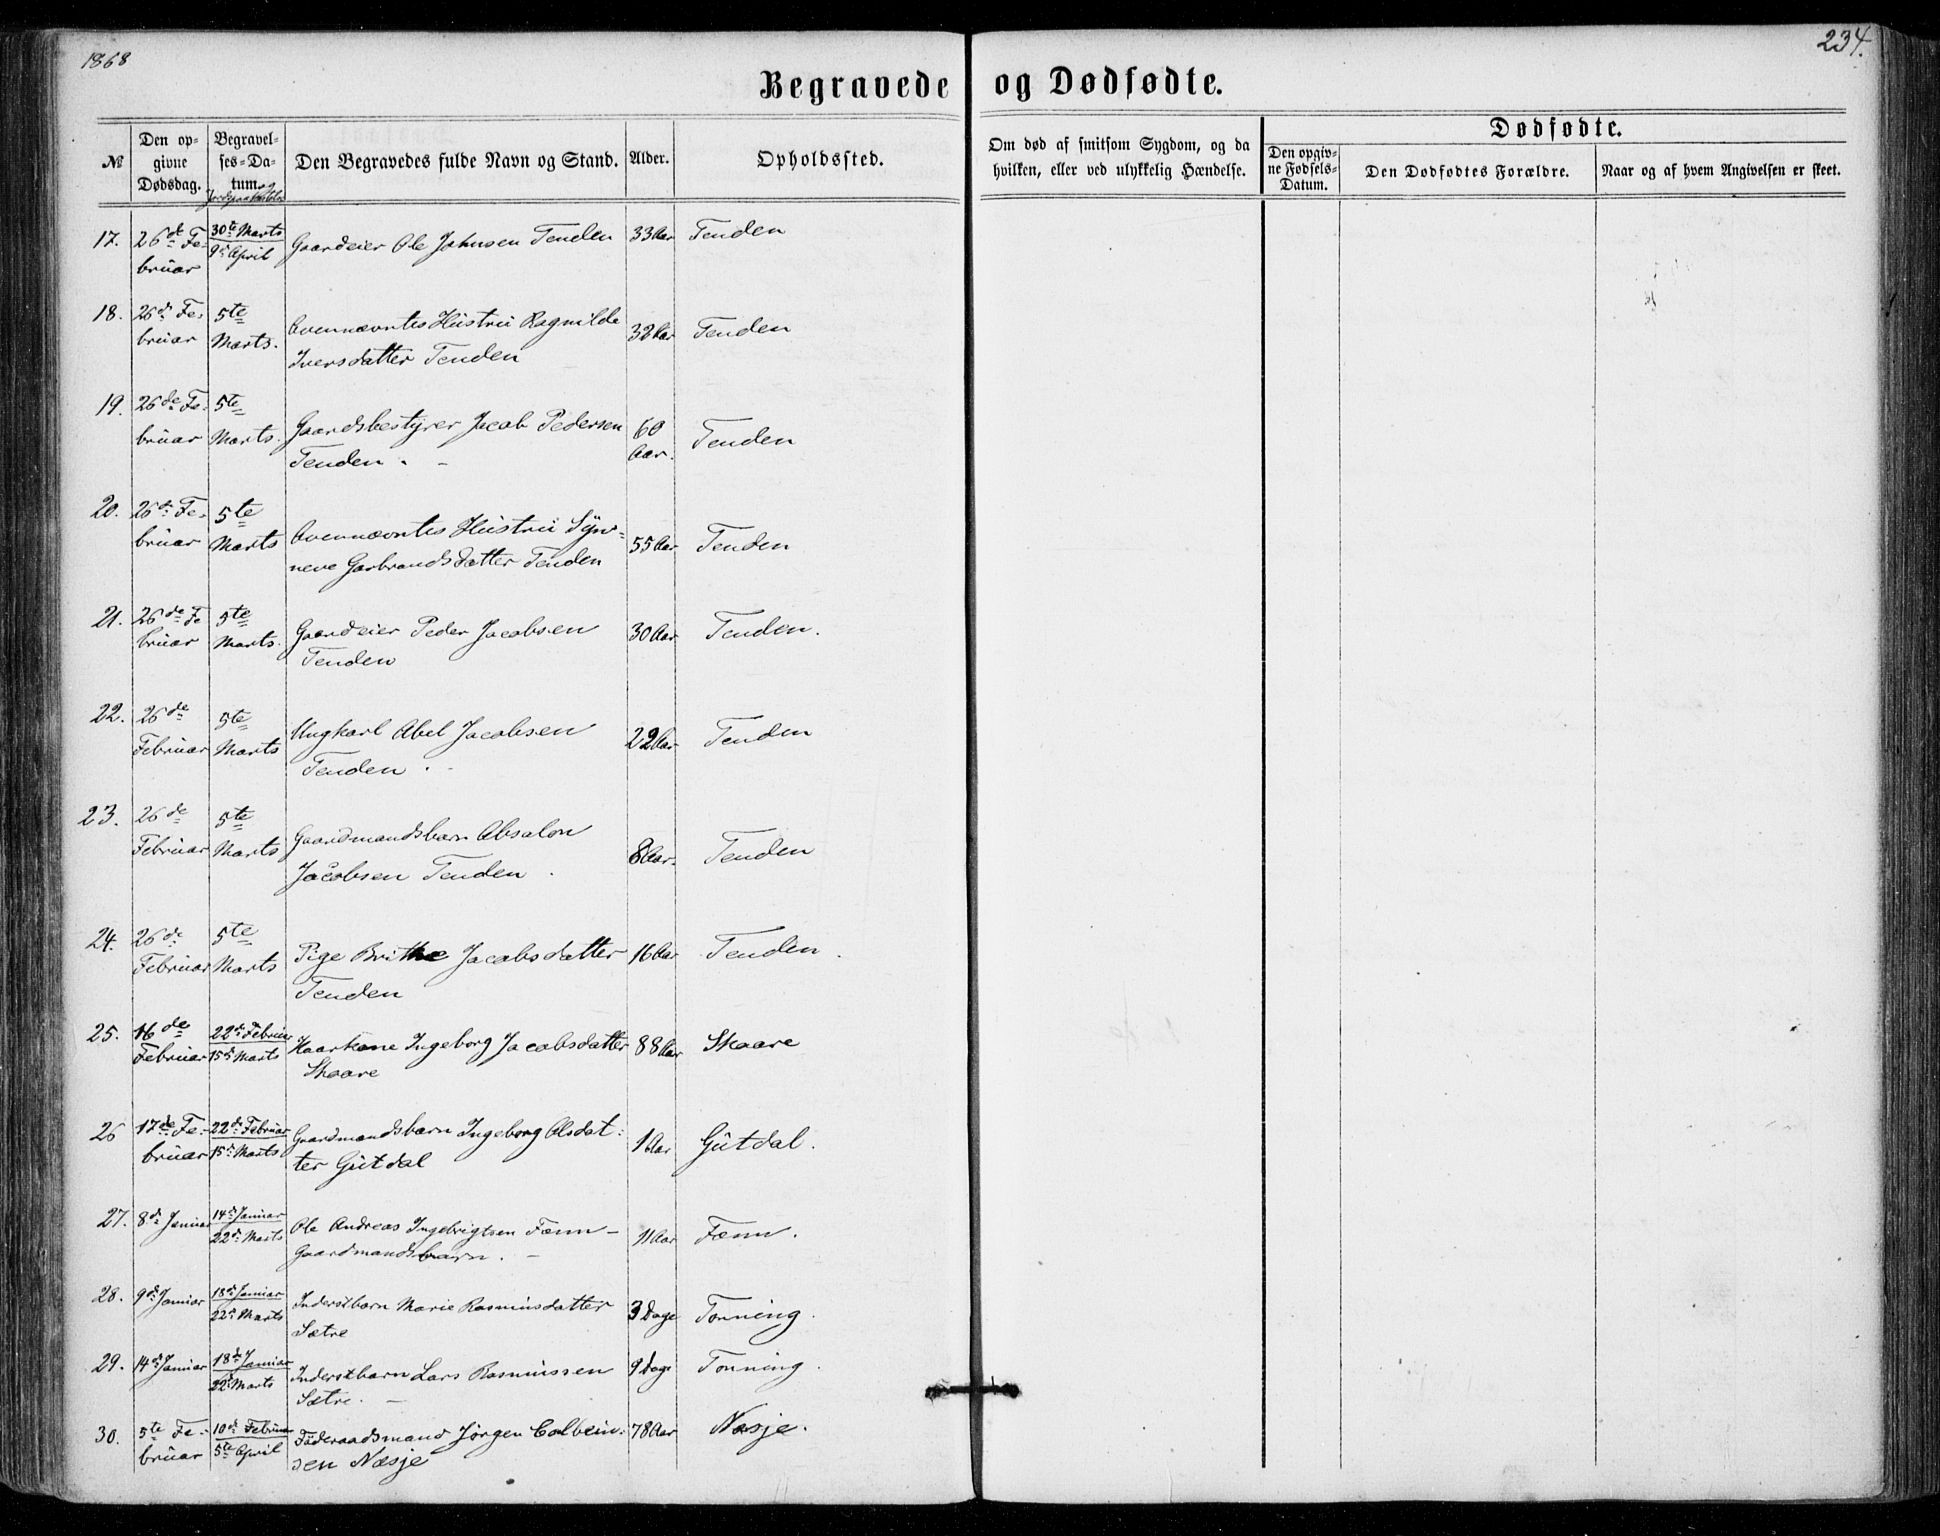 1868
234.
Begravede og Dødfødte.
№
Den op-
givne
Dødsdag.
Begravel-
ses-Da-
tum
Den Begravedes fulde Navn og Stand.
Alder.
Opholdssted.
Om død af smitsom Sygdom, og da
hvilken, eller ved ulykkelig Hændelse.
Dødfødte.
Den opgiv-
ne Fødsels-
Datum.
Den Dødfødtes Forældre.
Naar og af hvem Angivelsen er skeet.
17. 26de Fe- 30te Marts Gaardeier Ole Johnsen Tenden 33 Aar Tenden
bruar 9de April
18. 26de Fe- 5te Ovennævntes Hustru Ragnilde 32 Aar Tenden
bruar Marts. Iversdatter Tenden
19. 26de Fe- 5te Gaardsbestyrer Jacob Pedersen 60 Tenden
bruar Marts. Tenden. - Aar.
20. 26de Fe- 5te Ovennævntes Hustru Syn- 55 Aar Tenden
bruar Marts neve Garbrandsdatter Tenden
21. 26de Fe 5te Gaardeier Peder Jacobsen 30 Aar Tenden.
bruar Marts. Tenden
22. 26de 5te Ungkarl Abel Jacobsen 22 Aar Tenden
Februar Marts Tenden. -
23. 26de 5te Gaardmandsbarn Absalon 8 Aar. Tenden
Februar Marts Jacobsen Tenden.
24. 26de 5te Pige Brithe Jacobsdatter 16 Aar Tenden.
Februar Marts Tenden
25. 16de 22de Februar Haarkone Ingeborg Jacobsdatter 88 Aar Skaare
Februar 15de Marts Skaare
26 17de Fe- 22de Februar Gaardmandsbarn Ingeborg Olsdat: 1 Aar Gutdal.
bruar 15de Marts ter Gutdal
27. 8de Januar 14de Januar Ole Andreas Ingebrigtsen Fænn - 11 Aar Fænn.
22de Marts Gaardmandsbarn. -
28. 9de Januar 18de Januar Inderstbarn Marie Rasmusdatter 3 Dage Tonning.
22de Marts Sætre
29. 14de Januar 18de Januar Inderstbarn Lars Rasmussen 9 Dage Tonning.
22de Marts Sætre. -
30. 5te Fe- 10de Februar Föderaadsmand Jørgen Colbein: 78 Aar Næsje.
bruar 5te April sen Næsje